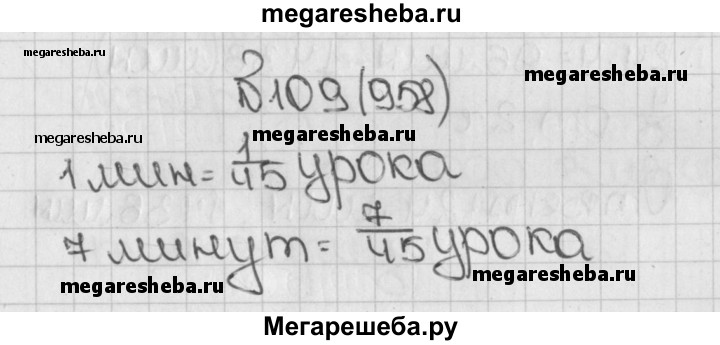 megaresheba.ru
megaresheba.ru
В 109 (958) megaresheba.ru
megaresheba.ru megaresheba.ru
1 мин = 1/45 урока
7 минут = 7/45 урока
megaresheba.ru megaresheba.ru
Мегарешеба.ру